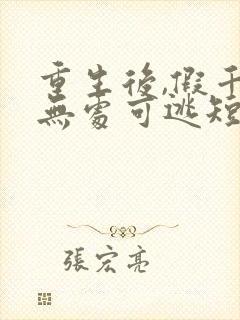 重生後,假千
無處可逃短
張宏亮